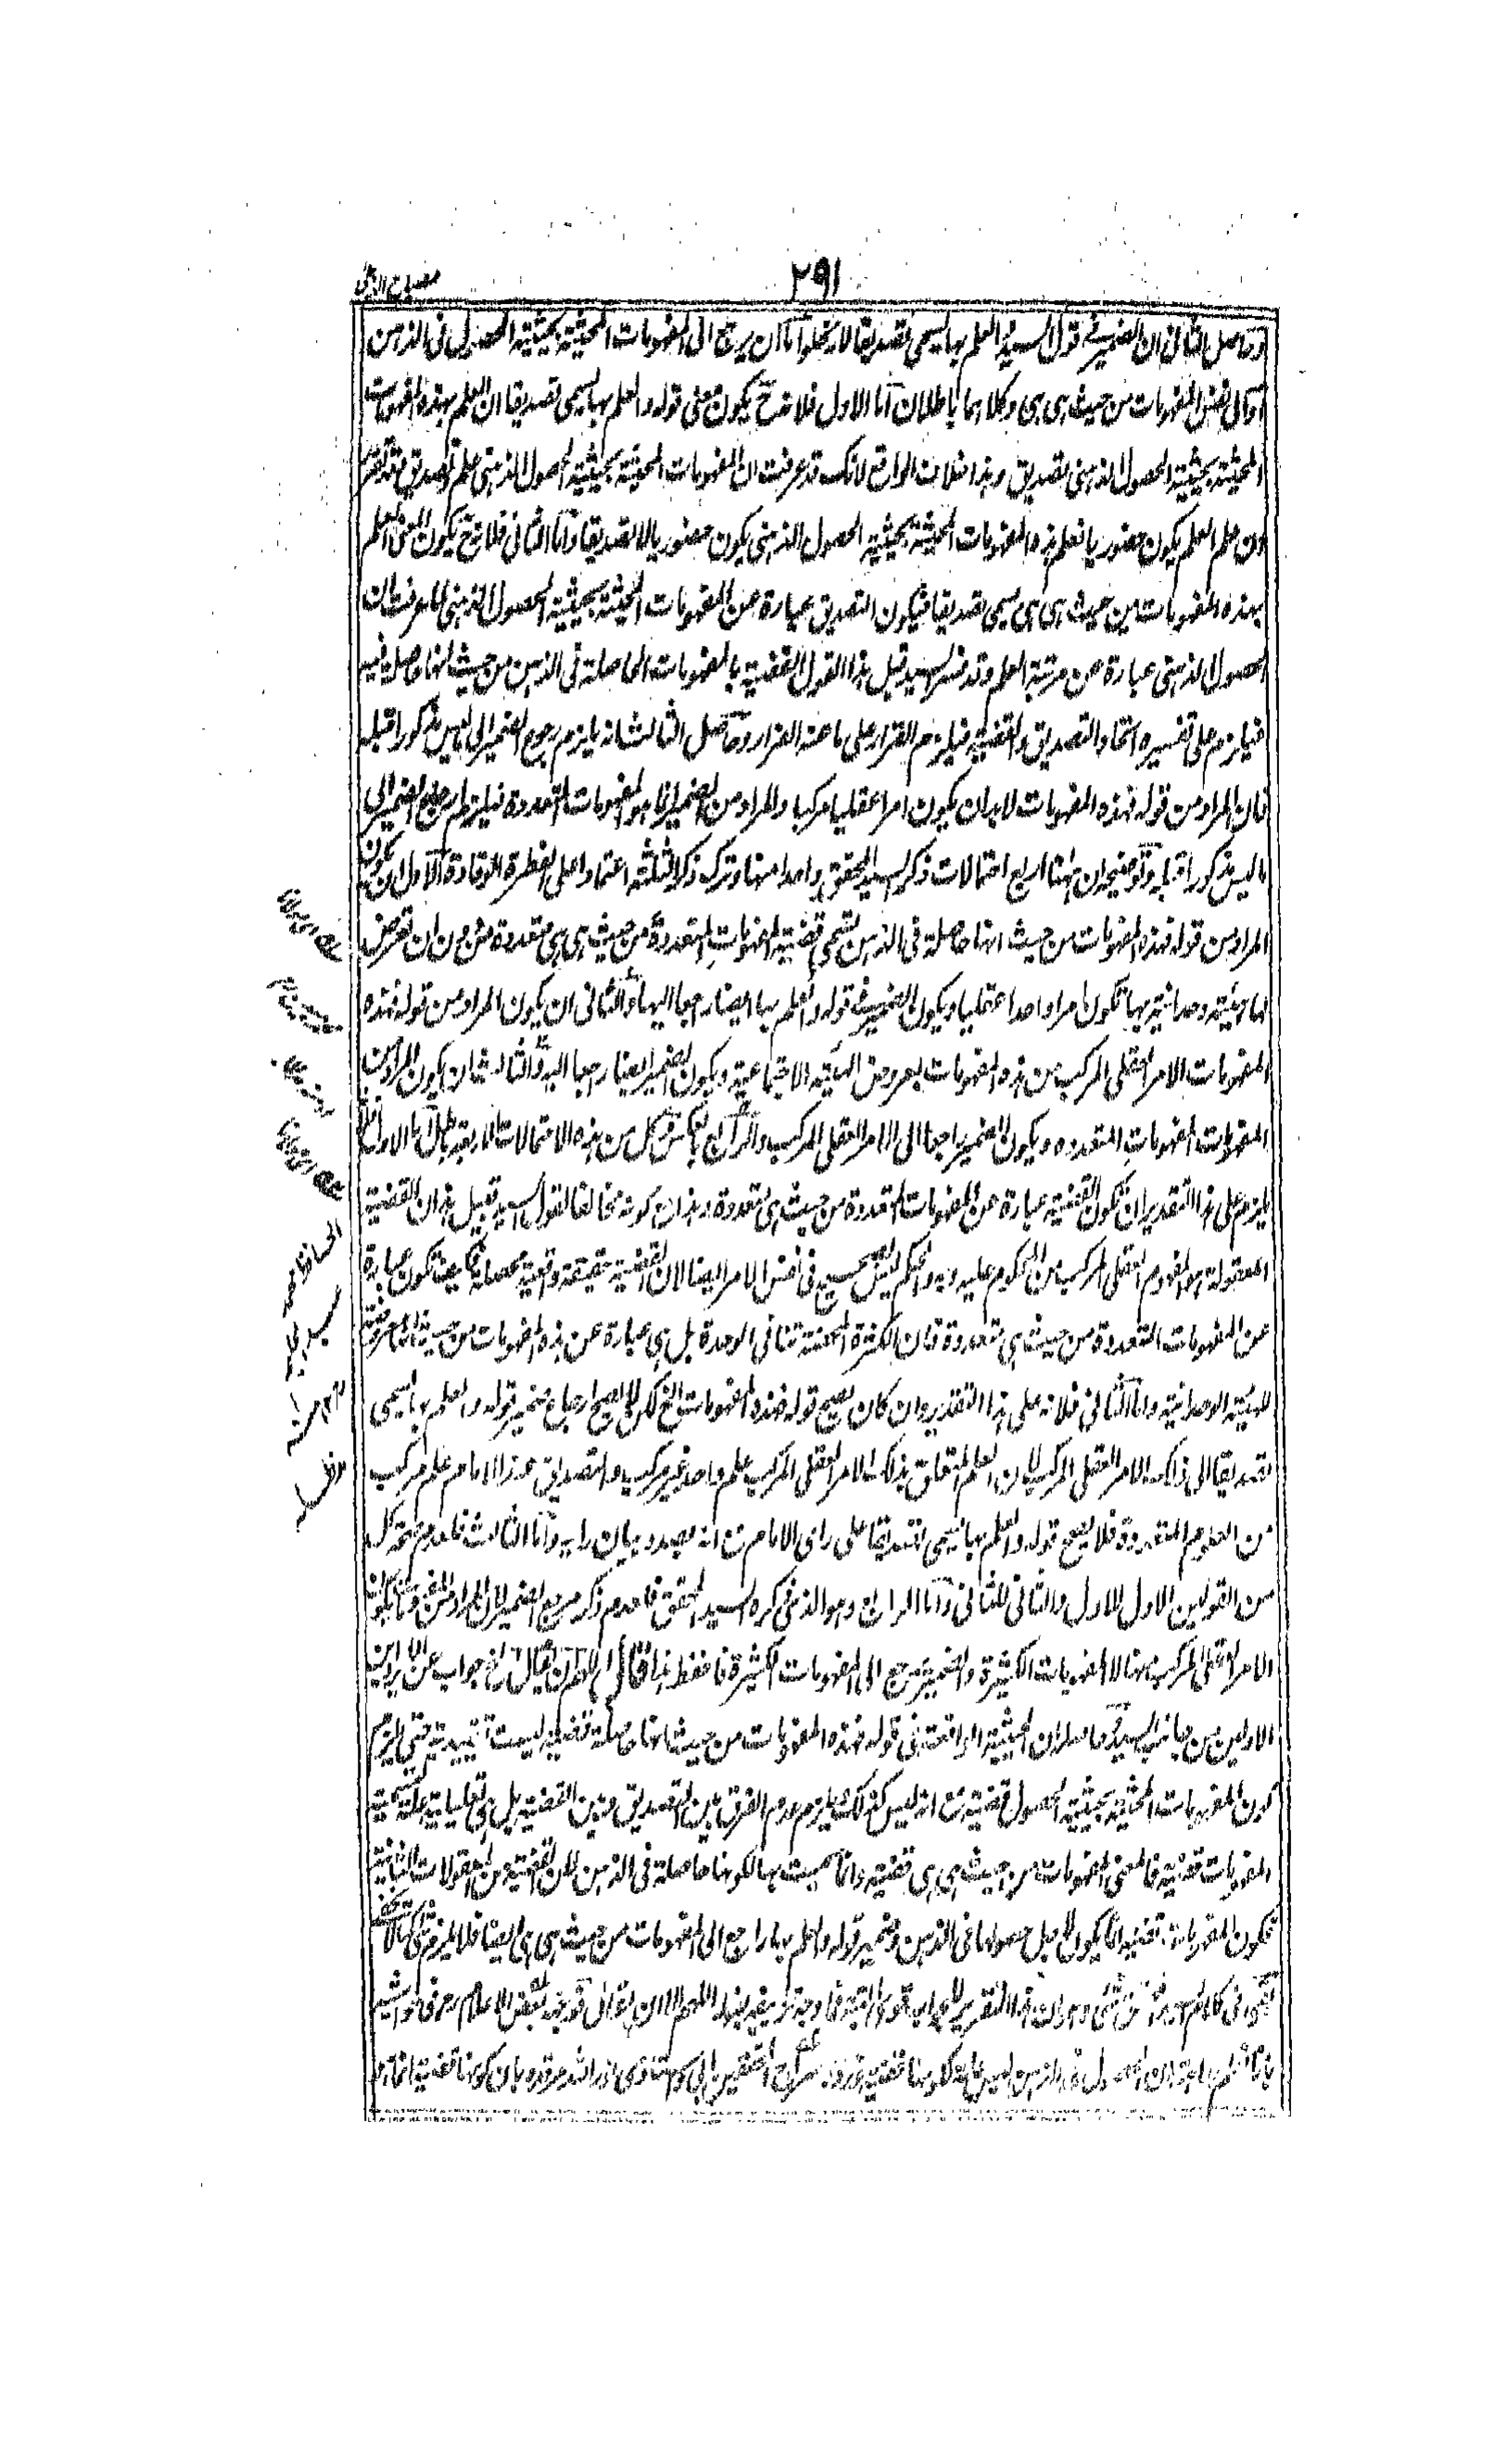 ٢٩١
مصباح الدجى
وحاصل الثانى ان الضمير فى قول السيد والعلم بها يسمى تصديقا لا يخلوا اما ان يرجع الى المفهومات المحيثة بحيثية الحصول فى الذهن
او الى نفس المفهومات من حيث هى هى وكلاهما باطلان اما الاول فلانه ح يكون معنى قوله والعلم بها يسمى تصديقا ان العلم بهذه المفهومات
المحيثة بحيثية الحصول الذهنى تصديق وهذا خلاف الواقع لانك قد عرفت ان المفهومات المحيثة بحيثية الحصول الذهنى علم وتصديق وقد تقرر
ان علم العلم يكون حضوريا فعلم هذه المفهومات المحيثة بحيثية الحصول الذهنى يكون حضوريا لا تصديقا واما الثانى فلانه ح يكون المعنى العلم
بهذه المفهومات من حيث هى هى يسمى تصديقا فيكون التصديق عبارة عن المفهومات المحيثة بحيثية الحصول الذهنى لما عرفت ان
الحصول الذهنى عبارة عن مرتبة العلم وقد فسر السيد قبل هذا القول القضية بالمفهومات الحاصلة فى الذهن من حيث انها حاصلة فيه
فيلزم على تفسيره اتحاد التصديق والقضية فيلزم القرار على ما عنه الفرار وحاصل الثالث انه يلزم رجوع الضمير الى ما ليس مذكورا قبله
فان المراد من قوله فهذه المفهومات لا بد ان يكون امرا عقليا مركبا والمراد من الضمير انما هو المفهومات المتعددة فيلزم ارجاع الضمير الى
ما ليس مذكورا قبله وتوضيحه ان ههنا اربع احتمالات ذكر السيد المحقق واحدا منها وترك ذكر الثلثة اعتمادا على الفطرة الوقادة الاول ان يكون
المراد من قوله فهذه المفهومات من حيث انها حاصلة فى الذهن تسمى قضية المفهومات المتعددة من حيث هى هى متعددة من دون ان تعرض
لها هيئة وحدانية بها تكون امرا واحدا عقليا ويكون الضمير فى قوله والعلم بها ايضا راجعا اليها والثانى ان يكون المراد من قوله فهذه
المفهومات الامر العقلى المركب من هذه المفهومات بعروض الهيئة الاجتماعية ويكون الضمير ايضا راجعا اليه والثالث ان يكون المراد من
المفهومات المفهومات المتعدده ويكون الضمير راجعا الى الامر العقلى المركب والرابع بالعكس وكل من هذه الاحتمالات الاربعة باطل اما الاول فلانه
يلزم على هذا التقدير ان تكون القضية عبارة عن المفهومات المتعددة من حيث هى متعددة وهذا مع كونه مخالفا لقول السيد قبيل هذا ان القضية
المعقولة هو المفهوم العقلى المركب من المحكوم عليه وبه والحكم ليس بصحيح فى نفس الامر ايضا لان القضية حقيقة واقعية محصلة فكيف تكون عبارة
عن المفهومات المتعددة من حيث هى متعددة فان الكثرة المحضة تنافى الوحدة بل هى عبارة عن هذه المفهومات من حيث انها معروضة
للهيئة الوحدانية واما الثانى فلانه على هذا التقدير وان كان يصح قوله فهذه المفهومات الخ لكن لا يصح ارجاع ضمير قوله والعلم بها يسمى
تصديقا الى ذلك الامر العقلى المركب لان العلم المتعلق بذلك الامر العقلى المركب علم واحد غير مركب والتصديق عند الامام علم مركب
من العلوم المتعددة فلا يصح قوله والعلم بها يسمى تصديقا على راى الامام مع انه بصدد بيان رايه واما الثالث فلعدم صحة كل
من القولين الاول للاول والثانى للثانى واما الرابع وهو الذى ذكره السيد المحقق فلعدم ذكر مرجع الضمير لان المراد من المفهومات
الامر العقلى المركب منها لا المفهومات الكثيرة والضمير يرجع الى المفهومات الكثيرة فاحفظ هذا قال اللهم الا ان يقال الخ جواب عن الايرادين
الاولين من جانب السيد حاصله ان الحيثية الواقعة فى قوله فهذه المفهومات من حيث انها حاصلة قضية ليست تقييدية حتى يلزم
كون المفهومات المحيثة بحيثية الحصول قضية مع انه ليس كذلك ويلزم عدم الفرق بين التصديق وبين القضية بل هى تعليلية علة لتسمية
المفهومات قضية فالمعنى المفهومات من حيث هى هى قضية وانما سميت بها لكونها حاصلة فى الذهن لان القضية من المعقولات الثانية
فكون المفهومات قضية انما يكون لاجل حصولها فى الذهن وضمير قوله والعلم بها راجع الى المفهومات من حيث هى هى ايضا فلا يلزم
الحافظ محمد
عبد الحليم
مد ظله